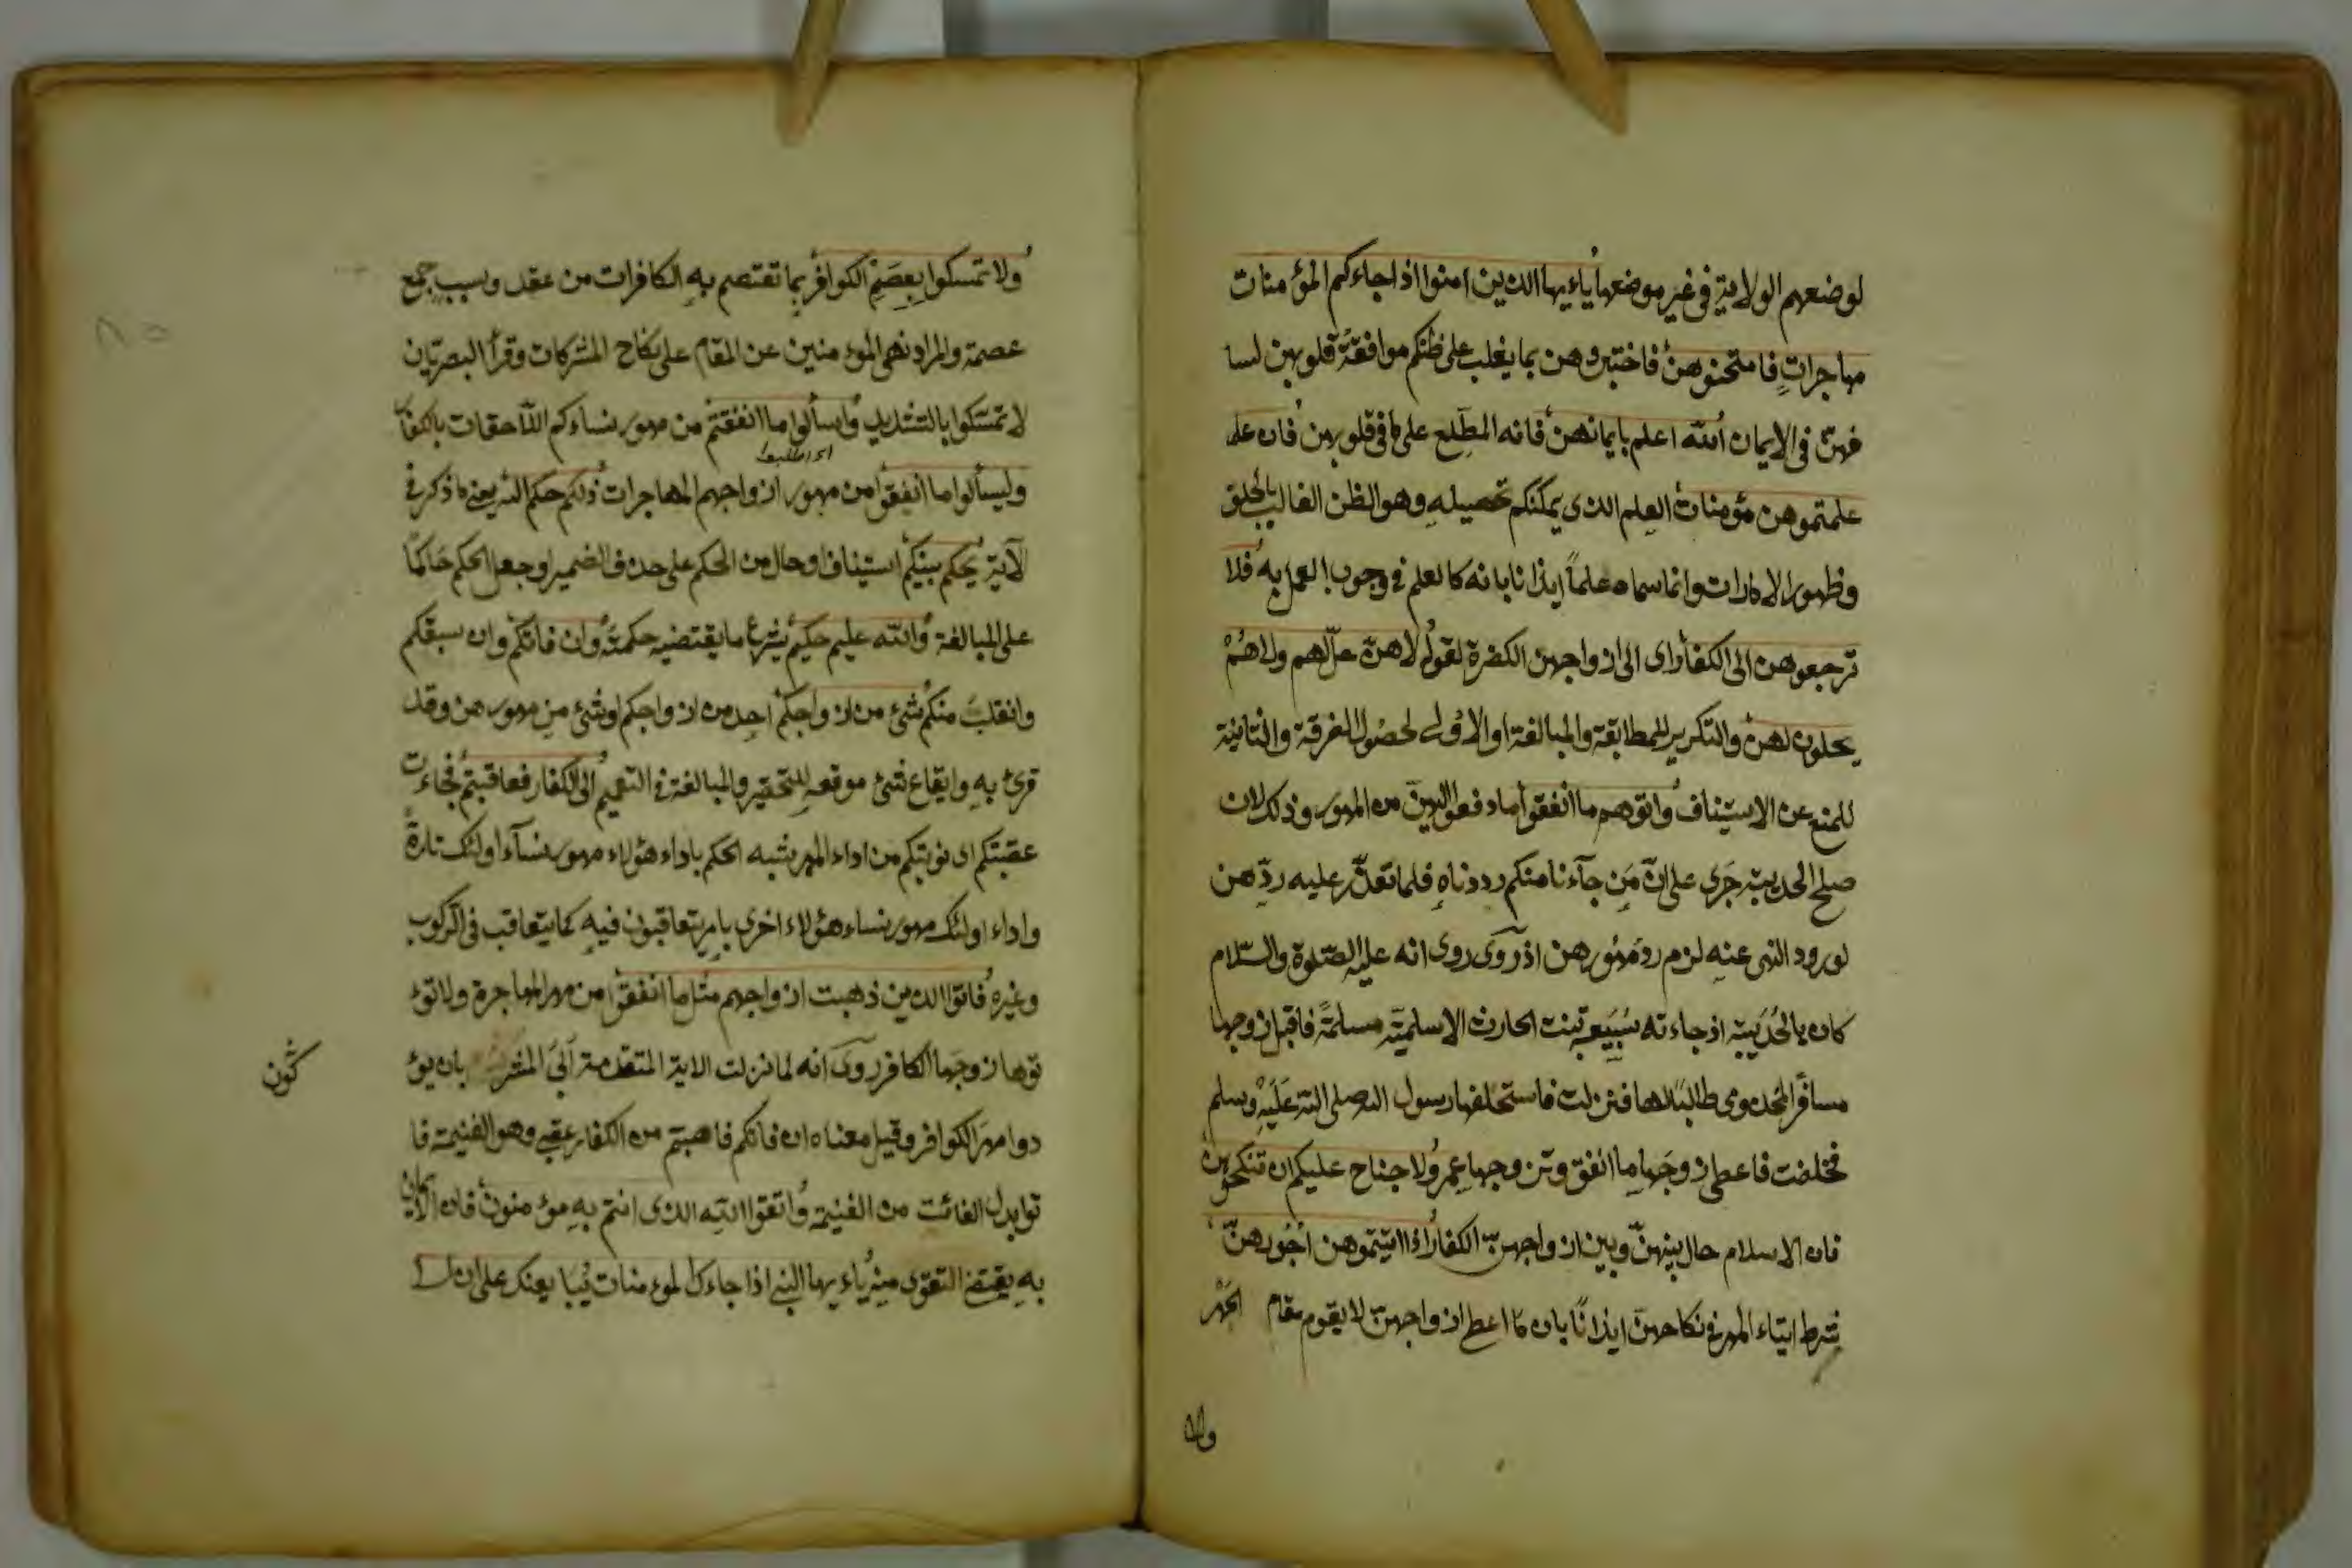 لوضعهم الولاية في غير موضعها ياءيها الذين امنوا اذا جاءكم المؤمنات
مهاجراتٍ فامتحنوهن فاختبروهن بما يغلب على ظنكم موافقة قلوبهن لسا
نهنّ في الايمان الله اعلم بايمانهن فانه المطّلع على ما في قلوبهن فان
علمتموهن مؤمنات العلم الذى يمكنكم تحصيله وهو الظن الغالب بالحلف
وظهور الامارات وانما سماه علماً ايذانا بانه كالعلم في وجوب العمل به فلا
ترجعوهن الى الكفار اى الى ازواجهن الكفرة لقوله لاهنّ حلّ لهم ولاهُمْ
يحلون لهن والتكرير للمطابقة والمبالغة او الاولى لحصول الفرقة والثانية
للمنع عن الاستيناف واتوهم ما انفقوا ما دفعوا اليهنّ من المهور وذلك لان
صلح الحديبية جَرى على انّ مَن جآءنا منكم رددناهِ فلما تعذّر عليه ردّهن
لورود النهى عنهِ لزم رد مُهُورهن اذ روى روى انه عليه الصلوة والسّلام
كان بالحُدَيبية اذ جاءته سُبَيعة بنت الحارث الاسلميّة مسلمةً فاقبل زوجها
مسافر المخذومى طالبًا لها فنزلت فاستحلفها رسول الله صلى الله عَلَيْهِ وسلم
فحلفت فاعطى زوجَها ما انفق وتزوجها عمر ولا جناح عليكم ان تنكحوهن
فان الاسلام حال بينهنّ وبين ازواجهنّ الكفار اذا اتيتموهن اجُورهنّ
شرط ايتاء المهر في نكاحهنّ ايذانًا بان ما اعطى ازواجهنّ لا يقوم مقام المَهْر
ولا
ولا تمسكوا بِعِصَمِ الكوافر بما تعتصم بهِ الكافرات من عقد وسبب جمع
عصمة والمراد نهى المؤمنين عن المقام على نكاح المشركات وقرأ البصريّان
لا تمَسّكوا بالتشديد واسألوا ما انفقتم من مهور نساءكم اللّاحقات بالكفار
اى اطلبوا
وليسألوا ما انفقوا من مهور ازواجهم المهاجرات ذلكم حكم الله يعنى ما ذكر في
الآية يحكم بينكم استيناف او حال من الحكم على حذف الضمير او جعل الحكم حَاكمًا
على المبالغة والله عليم حكيم يشرع ما يقتضيه حكمته وان فاتكم وان سبقكم
وانفلتَ منكم شئ من ازواجكم احد من ازواجكم او شئ مِن مهورهن وقد
قرئ بهِ وايقاع شئ موقعه للتحقير والمبالغة في التعميم الى الكفار فعاقبتم فجاءت
عقبتكم اى نوبتكم من اداء المهر شبه الحكم باداء هؤلاء مهور نسآء اولئك تارةً
واداء اولئك مهور نساء هؤلاء اخرى بامر يتعاقبون فيهِ كما يتعاقب في الرّكوب
وغيره فاتوا الذين ذهبت ازواجهم مثل ما انفقوا من مهر المهاجرة ولا تؤ
توها زوجَها الكافر روى انه لما نزلت الاية المتقدمة ابَى المشر بان يؤ
كون
دوا مهرَ الكوافر وقيل معناه ان فاتكم فاصبتم من الكفار عقبى وهو الغنيمة فا
توا بدل الفائت من الغنيمة واتقوا الله الذى انتم بهِ مؤمنون فان الايمان
بهِ يقتضى التقوى منه ياءيها النبى اذا جاءك المؤمنات يُبايعنك على ان لا